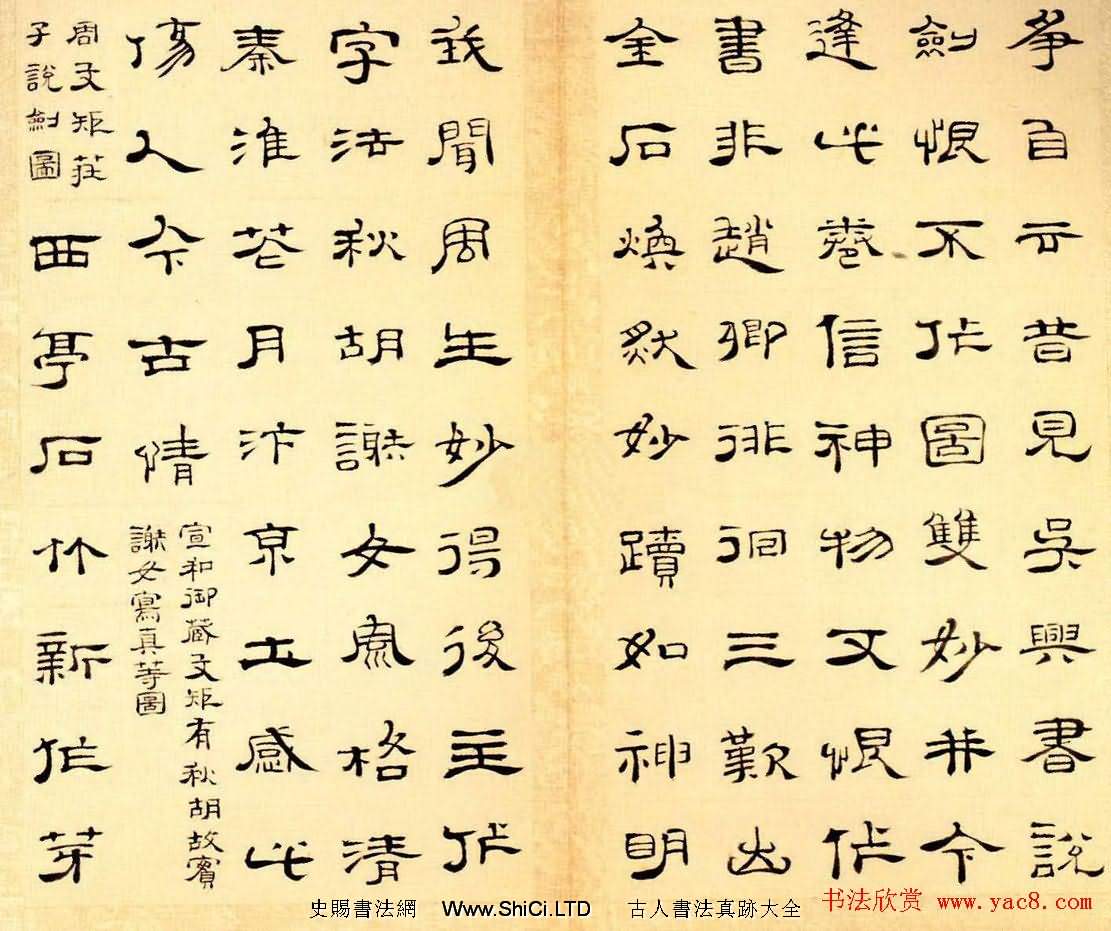 爭自云昔見吳興書說
劍恨不作圖雙妙并今
逢此卷信神物又恨作
書非趙卿徘徊三歎出
金石煥然妙蹟如神明
我聞周生妙得後主作
字法秋胡謝女風格清
秦淮花月汴京土感此
傷人今古情
宣和御藏文矩有秋胡故實
謝女寫真等圖
周文矩莊
子說劍圖
西亭石竹新芽
史賜書法網 Www.ShiCi.LTD 古人書法真跡大全
书法欣赏 www.yac8.com